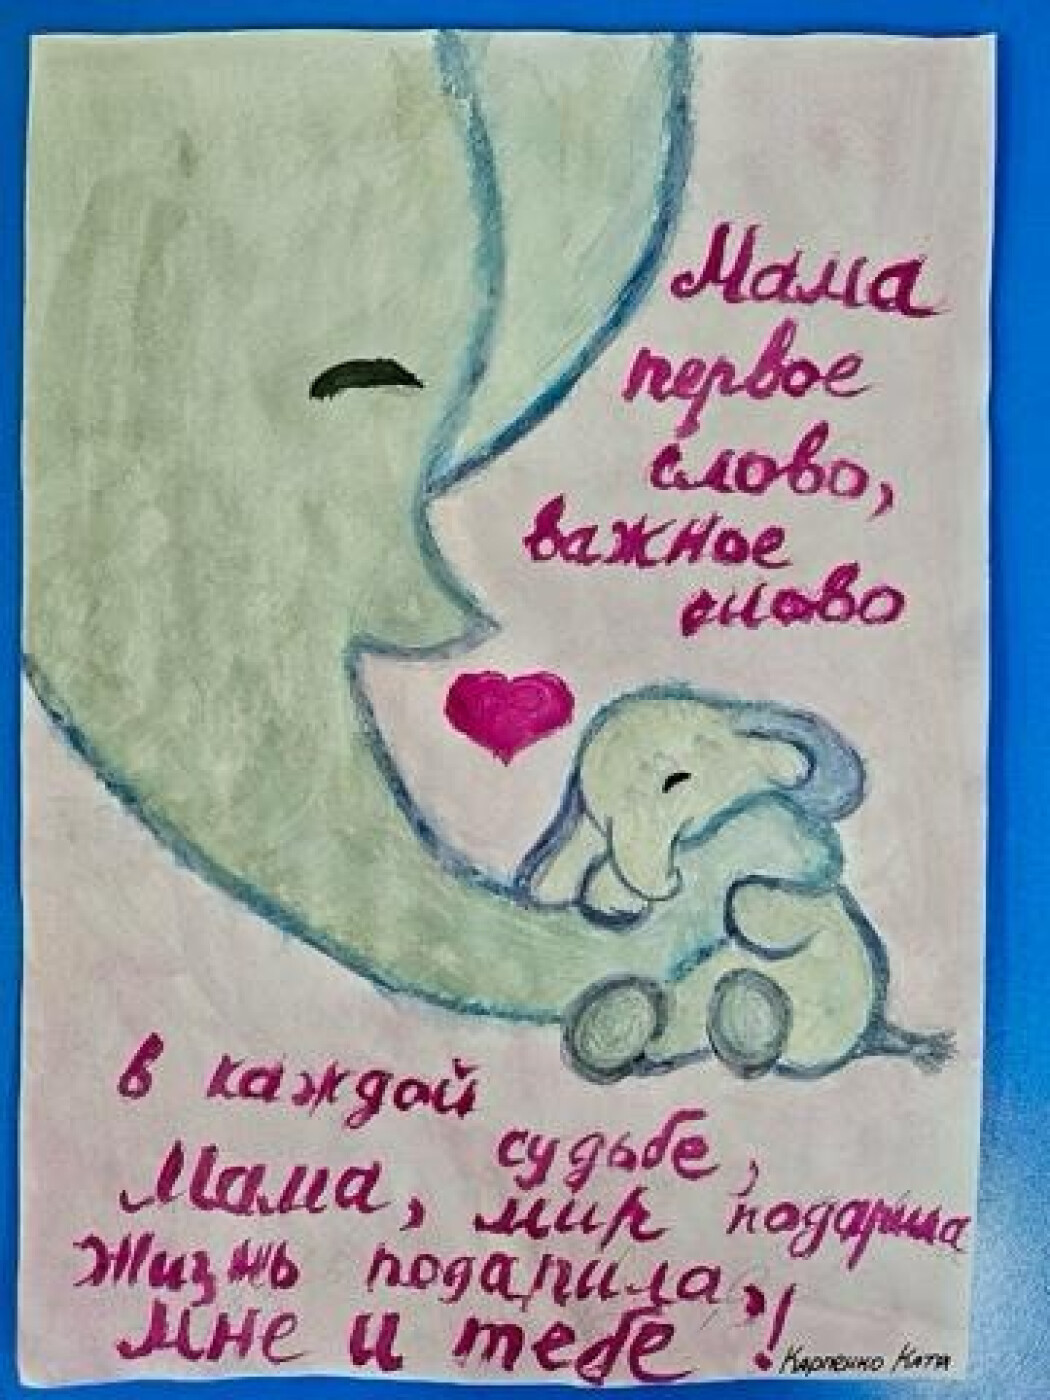 Мама
первое
слово,
важное
слово
в каждой
судьбе,
Мама, мир подарила
Жизнь подарила,
мне и тебе"!
Карпенко Катя